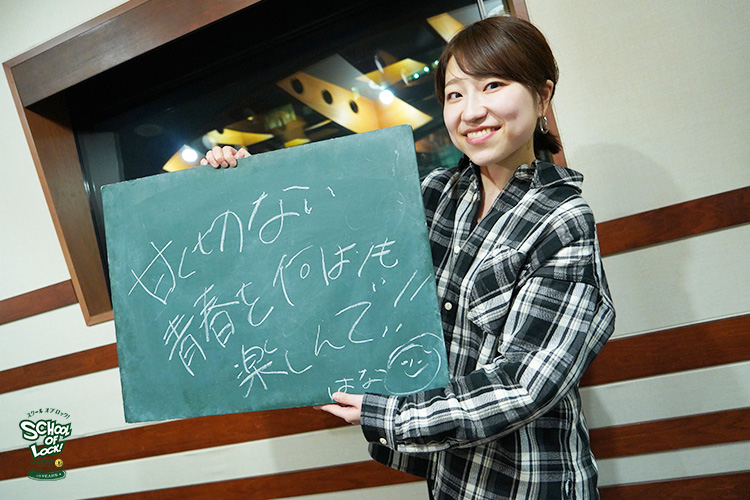 甘く切ない
青春を何よりも
楽しんで!!
はな
スクールオブロック!
SCHOOL
OF
LOCK!